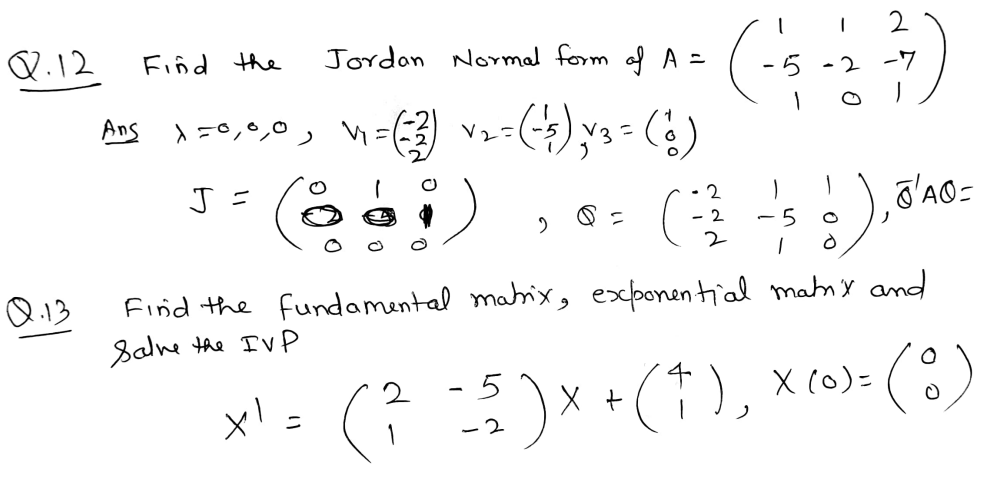 Q.12 Find the Jordan Normal form of A = ( 1 1 2 ; -5 -2 -7 ; 1 0 1 )
Ans λ = 0,0,0 , V1 = ( -2 ; -2 ; 2 ) V2 = ( 1 ; -5 ; 1 ) , V3 = ( 1 ; 0 ; 0 )
J = ( 0 1 0 ; 0 0 1 ; 0 0 0 ) , Q = ( -2 1 1 ; -2 -5 0 ; 2 1 0 ) , Q⁻¹AQ =
Q.13 Find the fundamental matrix, exponential matrix and
Solve the IVP
X' = ( 2 -5 ; 1 -2 ) X + ( 4 ; 1 ) , X(0) = ( 0 ; 0 )